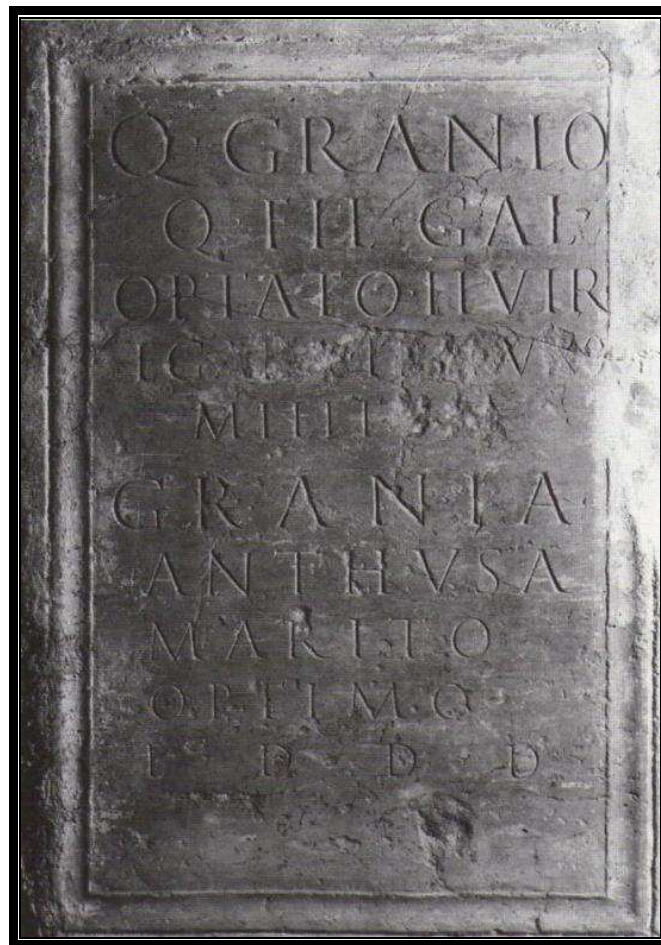 Q · GRANIO
Q · FIL · GAL
OPTATO · II VIR
MILITVM
GRANIA
ANTHVSA
MARITO
OPTIMO
L · D · D · D